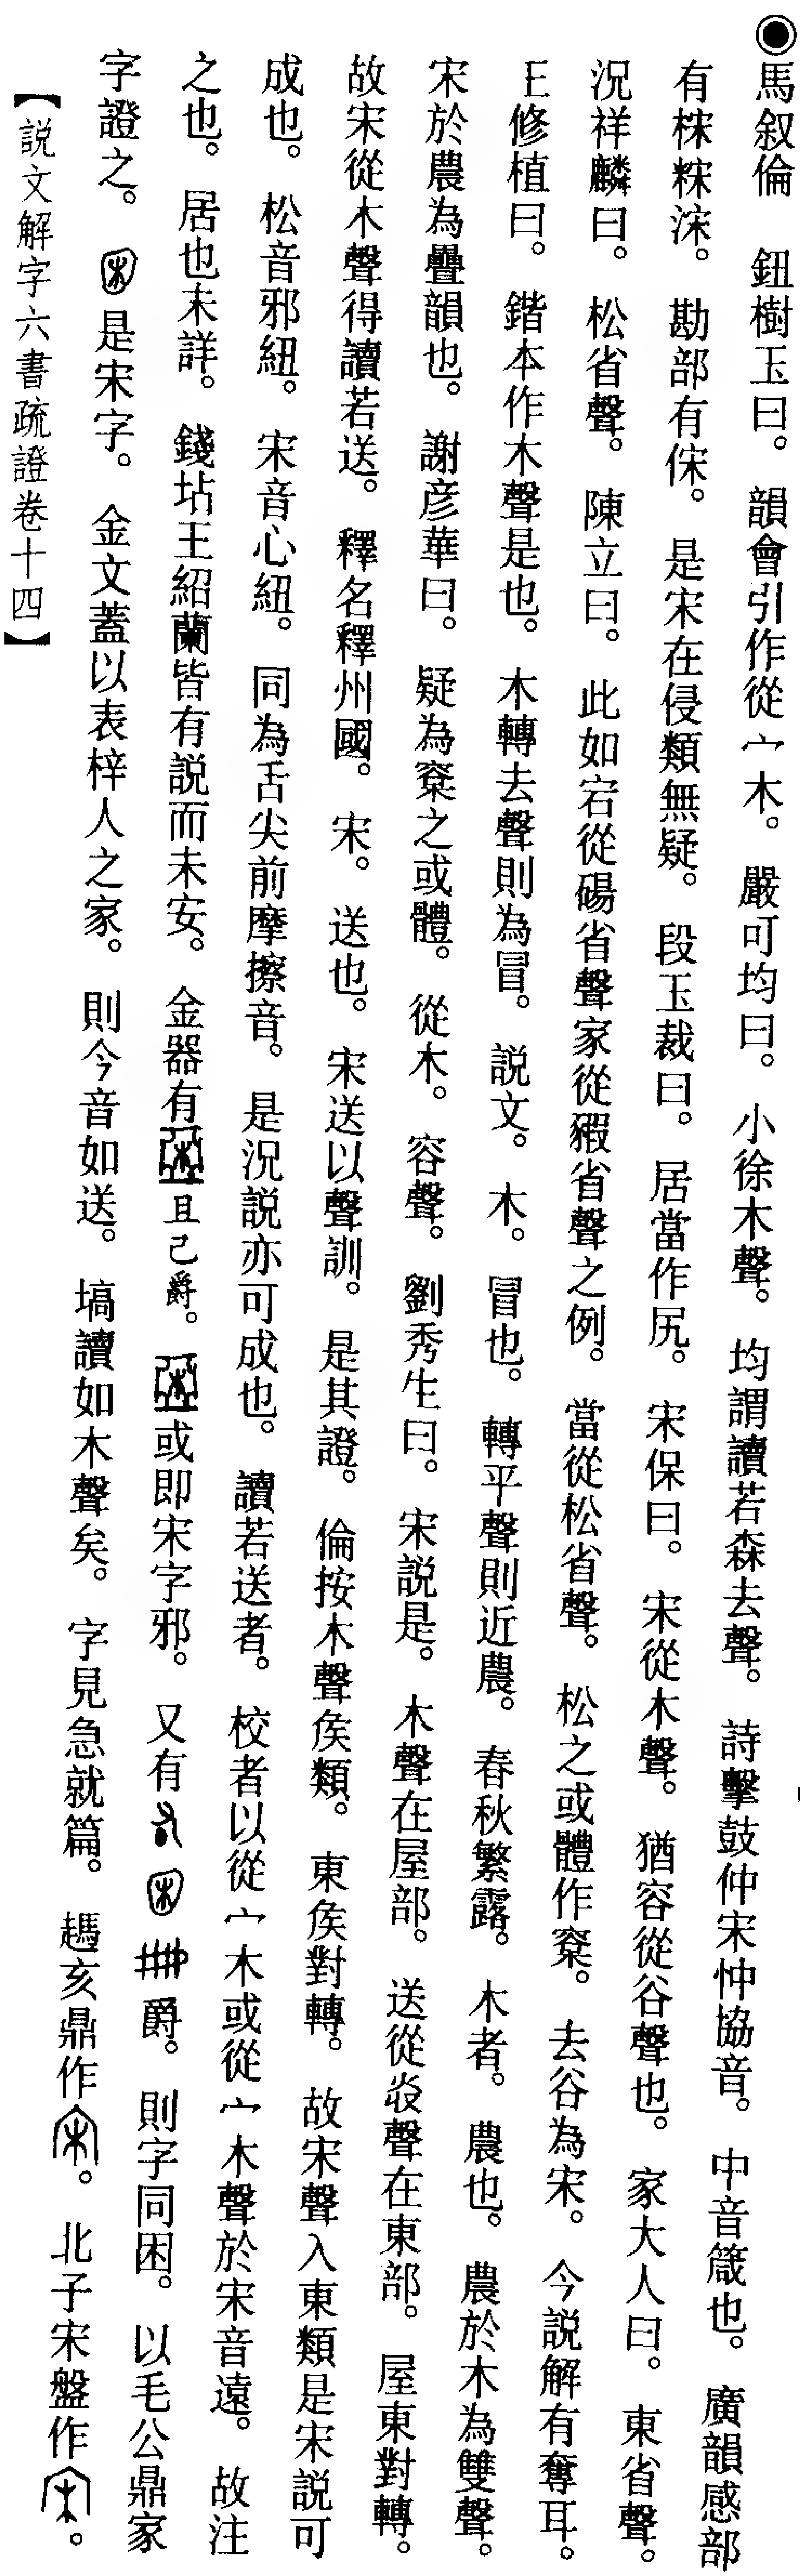 ●馬叙倫　鈕樹玉曰。韻會引作從宀木。嚴可均曰。小徐木聲。均謂讀若森去聲。詩擊鼓仲宋忡協音。中音箴也。廣韻感部
有䊏浨。勘部有㑱。是宋在侵類無疑。段玉裁曰。居當作凥。宋保曰。宋從木聲。猶容從谷聲也。家大人曰。東省聲。
況祥麟曰。松省聲。陳立曰。此如宕從碭省聲家從豭省聲之例。當從松省聲。松之或體作㮤。去谷為宋。今説解有奪耳。
王修植曰。鍇本作木聲是也。木轉去聲則為冒。説文。木。冒也。轉平聲則近農。春秋繁露。木者。農也。農於木為雙聲。
宋於農為疊韻也。謝彦華曰。疑為㮤之或體。從木。容聲。劉秀生曰。宋説是。木聲在屋部。送從㑞聲在東部。屋東對轉。
故宋從木聲得讀若送。釋名釋州國。宋。送也。宋送以聲訓。是其證。倫按木聲矦類。東矦對轉。故宋聲入東類是宋説可
成也。松音邪紐。宋音心紐。同為舌尖前摩擦音。是況説亦可成也。讀若送者。校者以從宀木或從宀木聲於宋音遠。故注
之也。居也未詳。錢坫王紹蘭皆有説而未安。金器有且己爵。或即宋字邪。又有爵。則字同困。以毛公鼎家
字證之。是宋字。金文蓋以表梓人之家。則今音如送。塙讀如木聲矣。字見急就篇。趞亥鼎作。北子宋盤作。
【説文解字六書疏證卷十四】